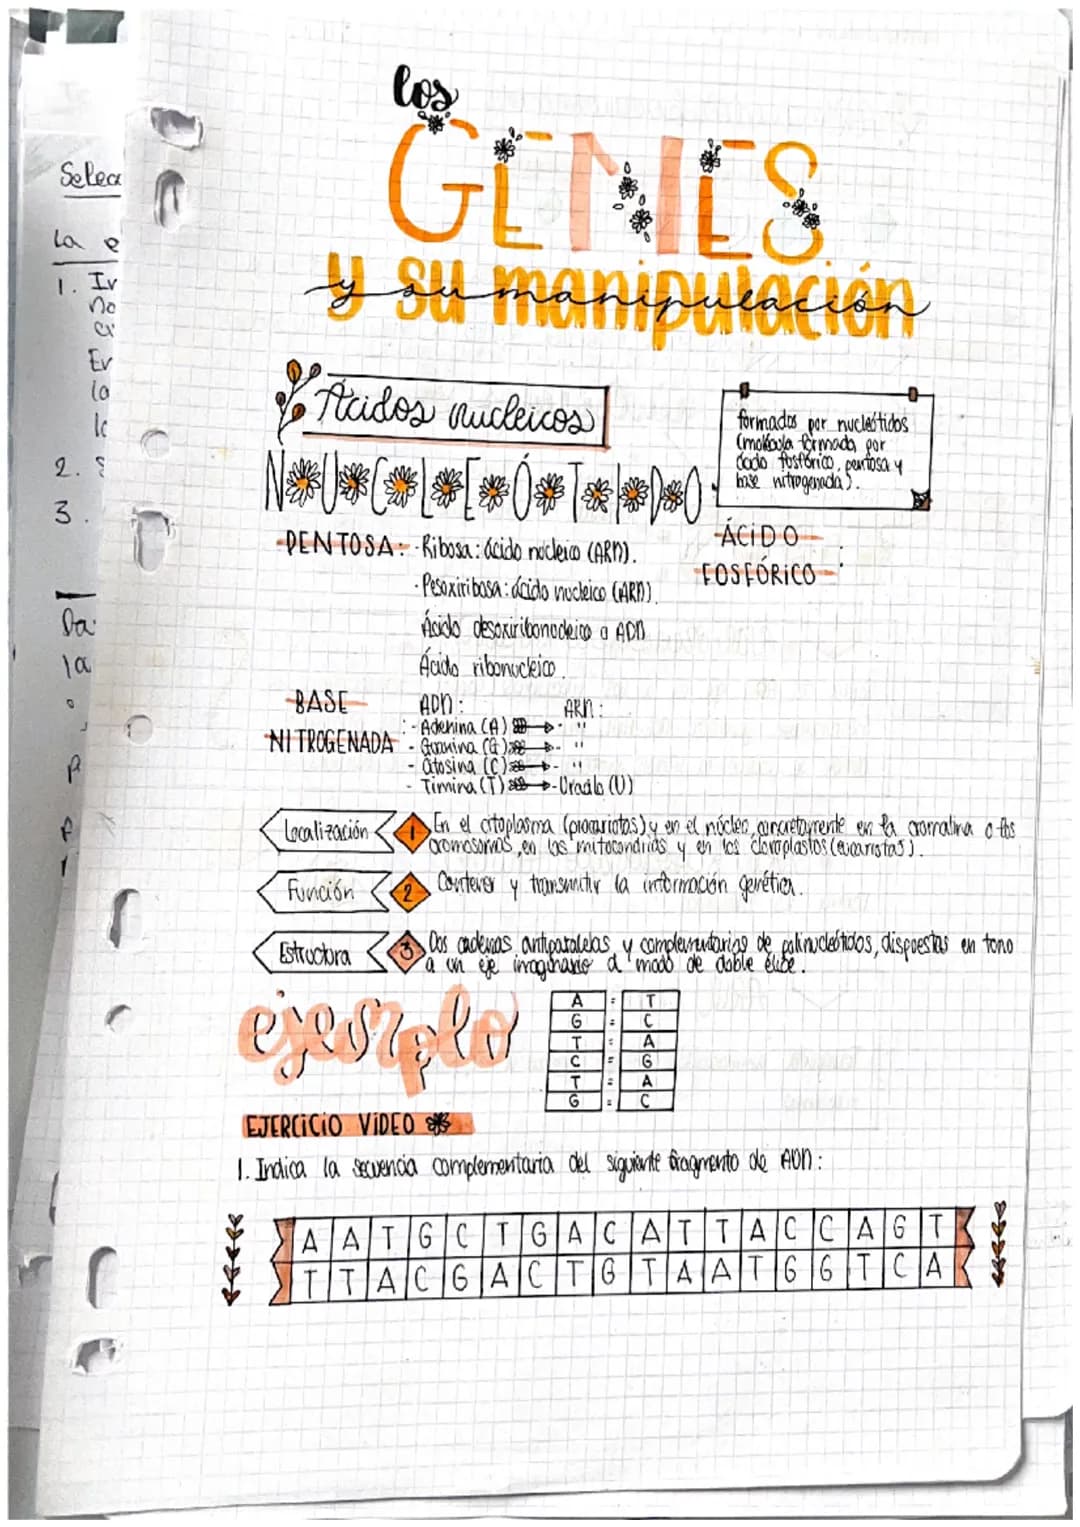 los
GENES
y su manipulación
Ácidos nucleicos
formados por nucleótidos
(molécula formada por
ácido fosfórico, pentosa y
base nitrogenada).
NUCLEÓTIDO
PENTOSA: - Ribosa: ácido nucleico (ARN).
- Pesoxiribosa: ácido nucleico (ARN).
Ácido desoxiribonucleico o ADN
Ácido ribonucleico.
ÁCIDO
FOSFÓRICO :
BASE
NITROGENADA :
ADN: ARN:
- Adenina (A) - "
- Guanina (G) - "
- Citosina (C) - "
- Timina (T) - Uracilo (U)
Localización 1 En el citoplasma (procariotas) y en el núcleo, concretamente en la cromatina o los
cromosomas, en las mitocondrias y en los cloroplastos (eucariotas).
Función 2 Contener y transmitir la información genética.
Estructura 3 Dos cadenas antiparalelas y complementarias de polinucleótidos, dispuestas en torno
a un eje imaginario a modo de doble élice.
ejemplo
A = T
G = C
T = A
C = G
T = A
G = C
EJERCICIO VÍDEO
1. Indica la secuencia complementaria del siguiente fragmento de ADN:
A A T G C T G A C A T T A C C A G T
T T A C G A C T G T A A T G G T C A
Selec
La e
1. Ir
no
Ev
la
2.
3.
Da
la